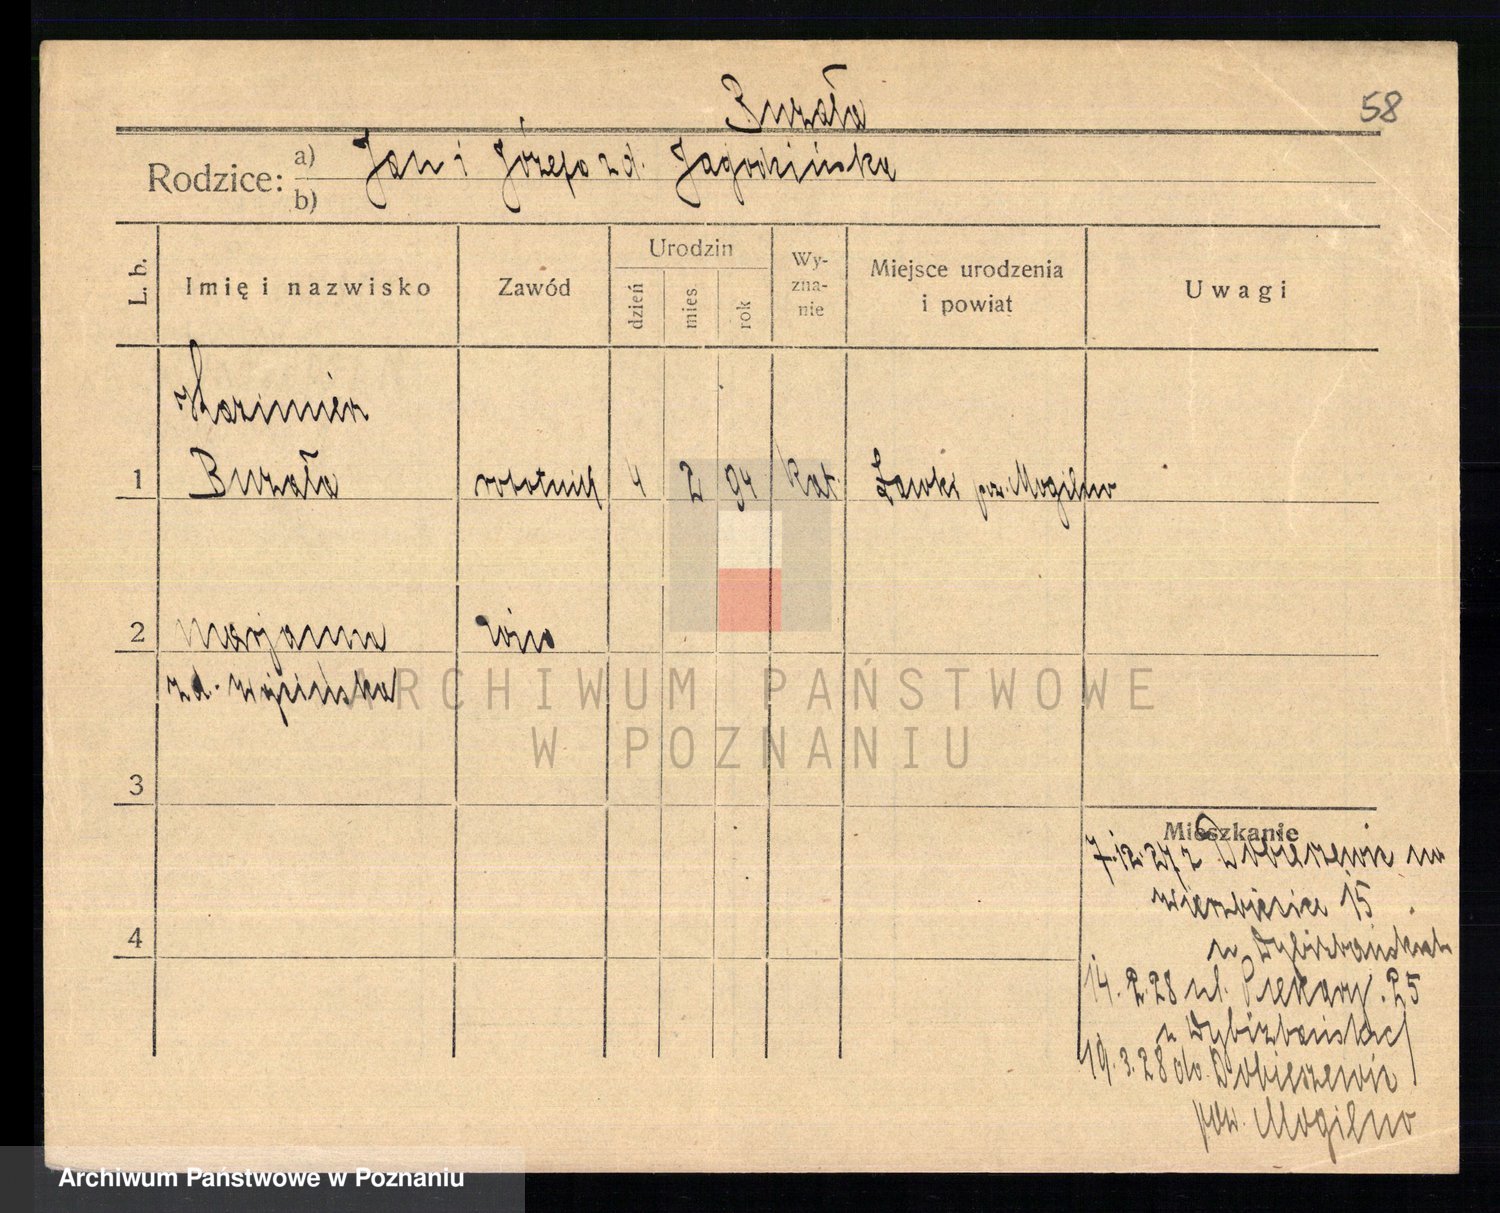 Burzała
58
Rodzice: a) Jan i Józefa zd. Jagodzińska
b)
L. b.
Imię i nazwisko
Zawód
Urodzin
dzień
mies.
rok
Wy-
zna-
nie
Miejsce urodzenia
i powiat
Uwagi
Kazimierz
1 Burzała robotnik 4 2 94 kat. Ławki pow. Mogilno
2 Marjanna żona
zd.
3
Mieszkanie
7.12.27 z Dobieszewic na
Wierzbięcice 15
4
u
14.2.28 ul. Piekary 25
u
19.3.28 do Dobieszewic
pow. Mogilno
ARCHIWUM PAŃSTWOWE
W POZNANIU
Archiwum Państwowe w Poznaniu